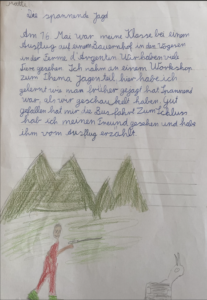 Die spannende Jagd
Am 16. Mai war meine Klasse bei einem
Ausflug auf einem Bauernhof in der
in der Ferme d' Argenton. Wir haben viele
Tiere gesehen. Ich nahm an einem Workshop
zum Thema Jagen teil hier hab ich
gelernt wie man früher gejagt hat Spannend
war, als wir geschaukelt haben. gut
gefallen hat mir die Busfahrt. Zum Schluss
hab ich meinen Freund gesehen und habe
ihm vom Ausflug erzählt.